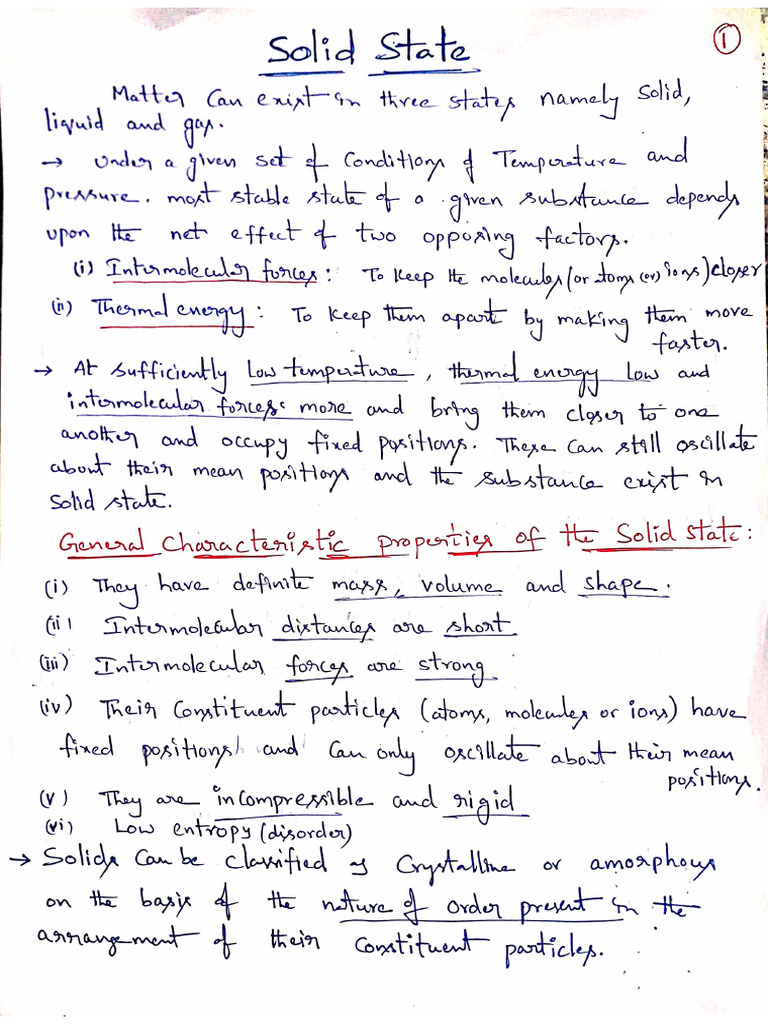 Solid State
1
Matter Can exist in three states namely Solid,
liquid and gas.
→ Under a given set of Conditions of Temperature and
pressure. most stable state of a given substance depends
upon the net effect of two opposing factors.
(i) Intermolecular forces: To Keep the molecules (or atoms (or) ions) closer
(ii) Thermal energy: To Keep them apart by making them move
faster.
→ At sufficiently Low temperature, thermal energy Low and
intermolecular forces more and bring them closer to one
another and occupy fixed positions. These Can still oscillate
about their mean positions and the substance exist in
Solid state.
General Characteristic properties of the Solid state:
(i) They have definite mass, volume and shape.
(ii) Intermolecular distances are short
(iii) Intermolecular forces are strong.
(iv) Their Constituent particles (atoms, molecules or ions) have
fixed positions and Can only oscillate about their mean
positions.
(v) They are incompressible and rigid
(vi) Low entropy (disorder)
→ Solids Can be Classified as Crystalline or amorphous
on the basis of the nature of order present in the
arrangement of their Constituent particles.